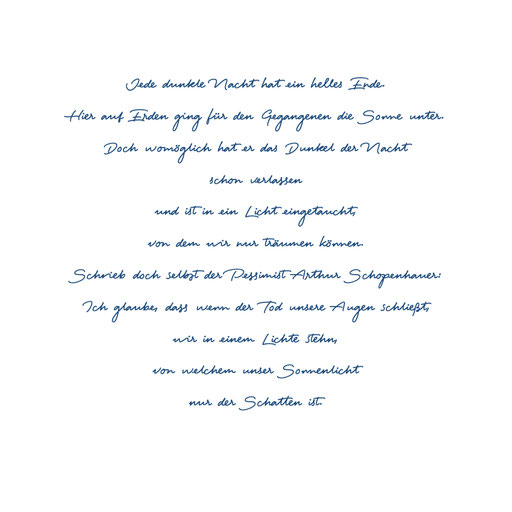 Jede dunkle Nacht hat ein helles Ende.
Hier auf Erden ging für den Gegangenen die Sonne unter.
Doch womöglich hat er das Dunkel der Nacht
schon verlassen
und ist in ein Licht eingetaucht,
von dem wir nur träumen können.
Schrieb doch selbst der Pessimist Arthur Schopenhauer:
Ich glaube, dass wenn der Tod unsere Augen schließt,
wir in einem Lichte stehn,
von welchem unser Sonnenlicht
nur der Schatten ist.